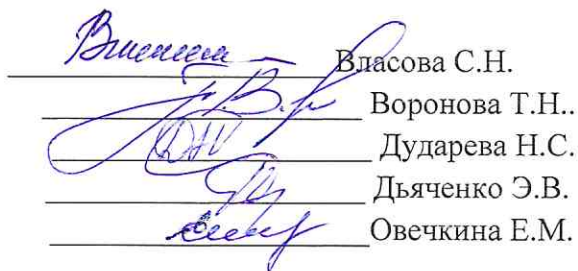 Власова С.Н.
Воронова Т.Н..
Дударева Н.С.
Дьяченко Э.В.
Овечкина Е.М.